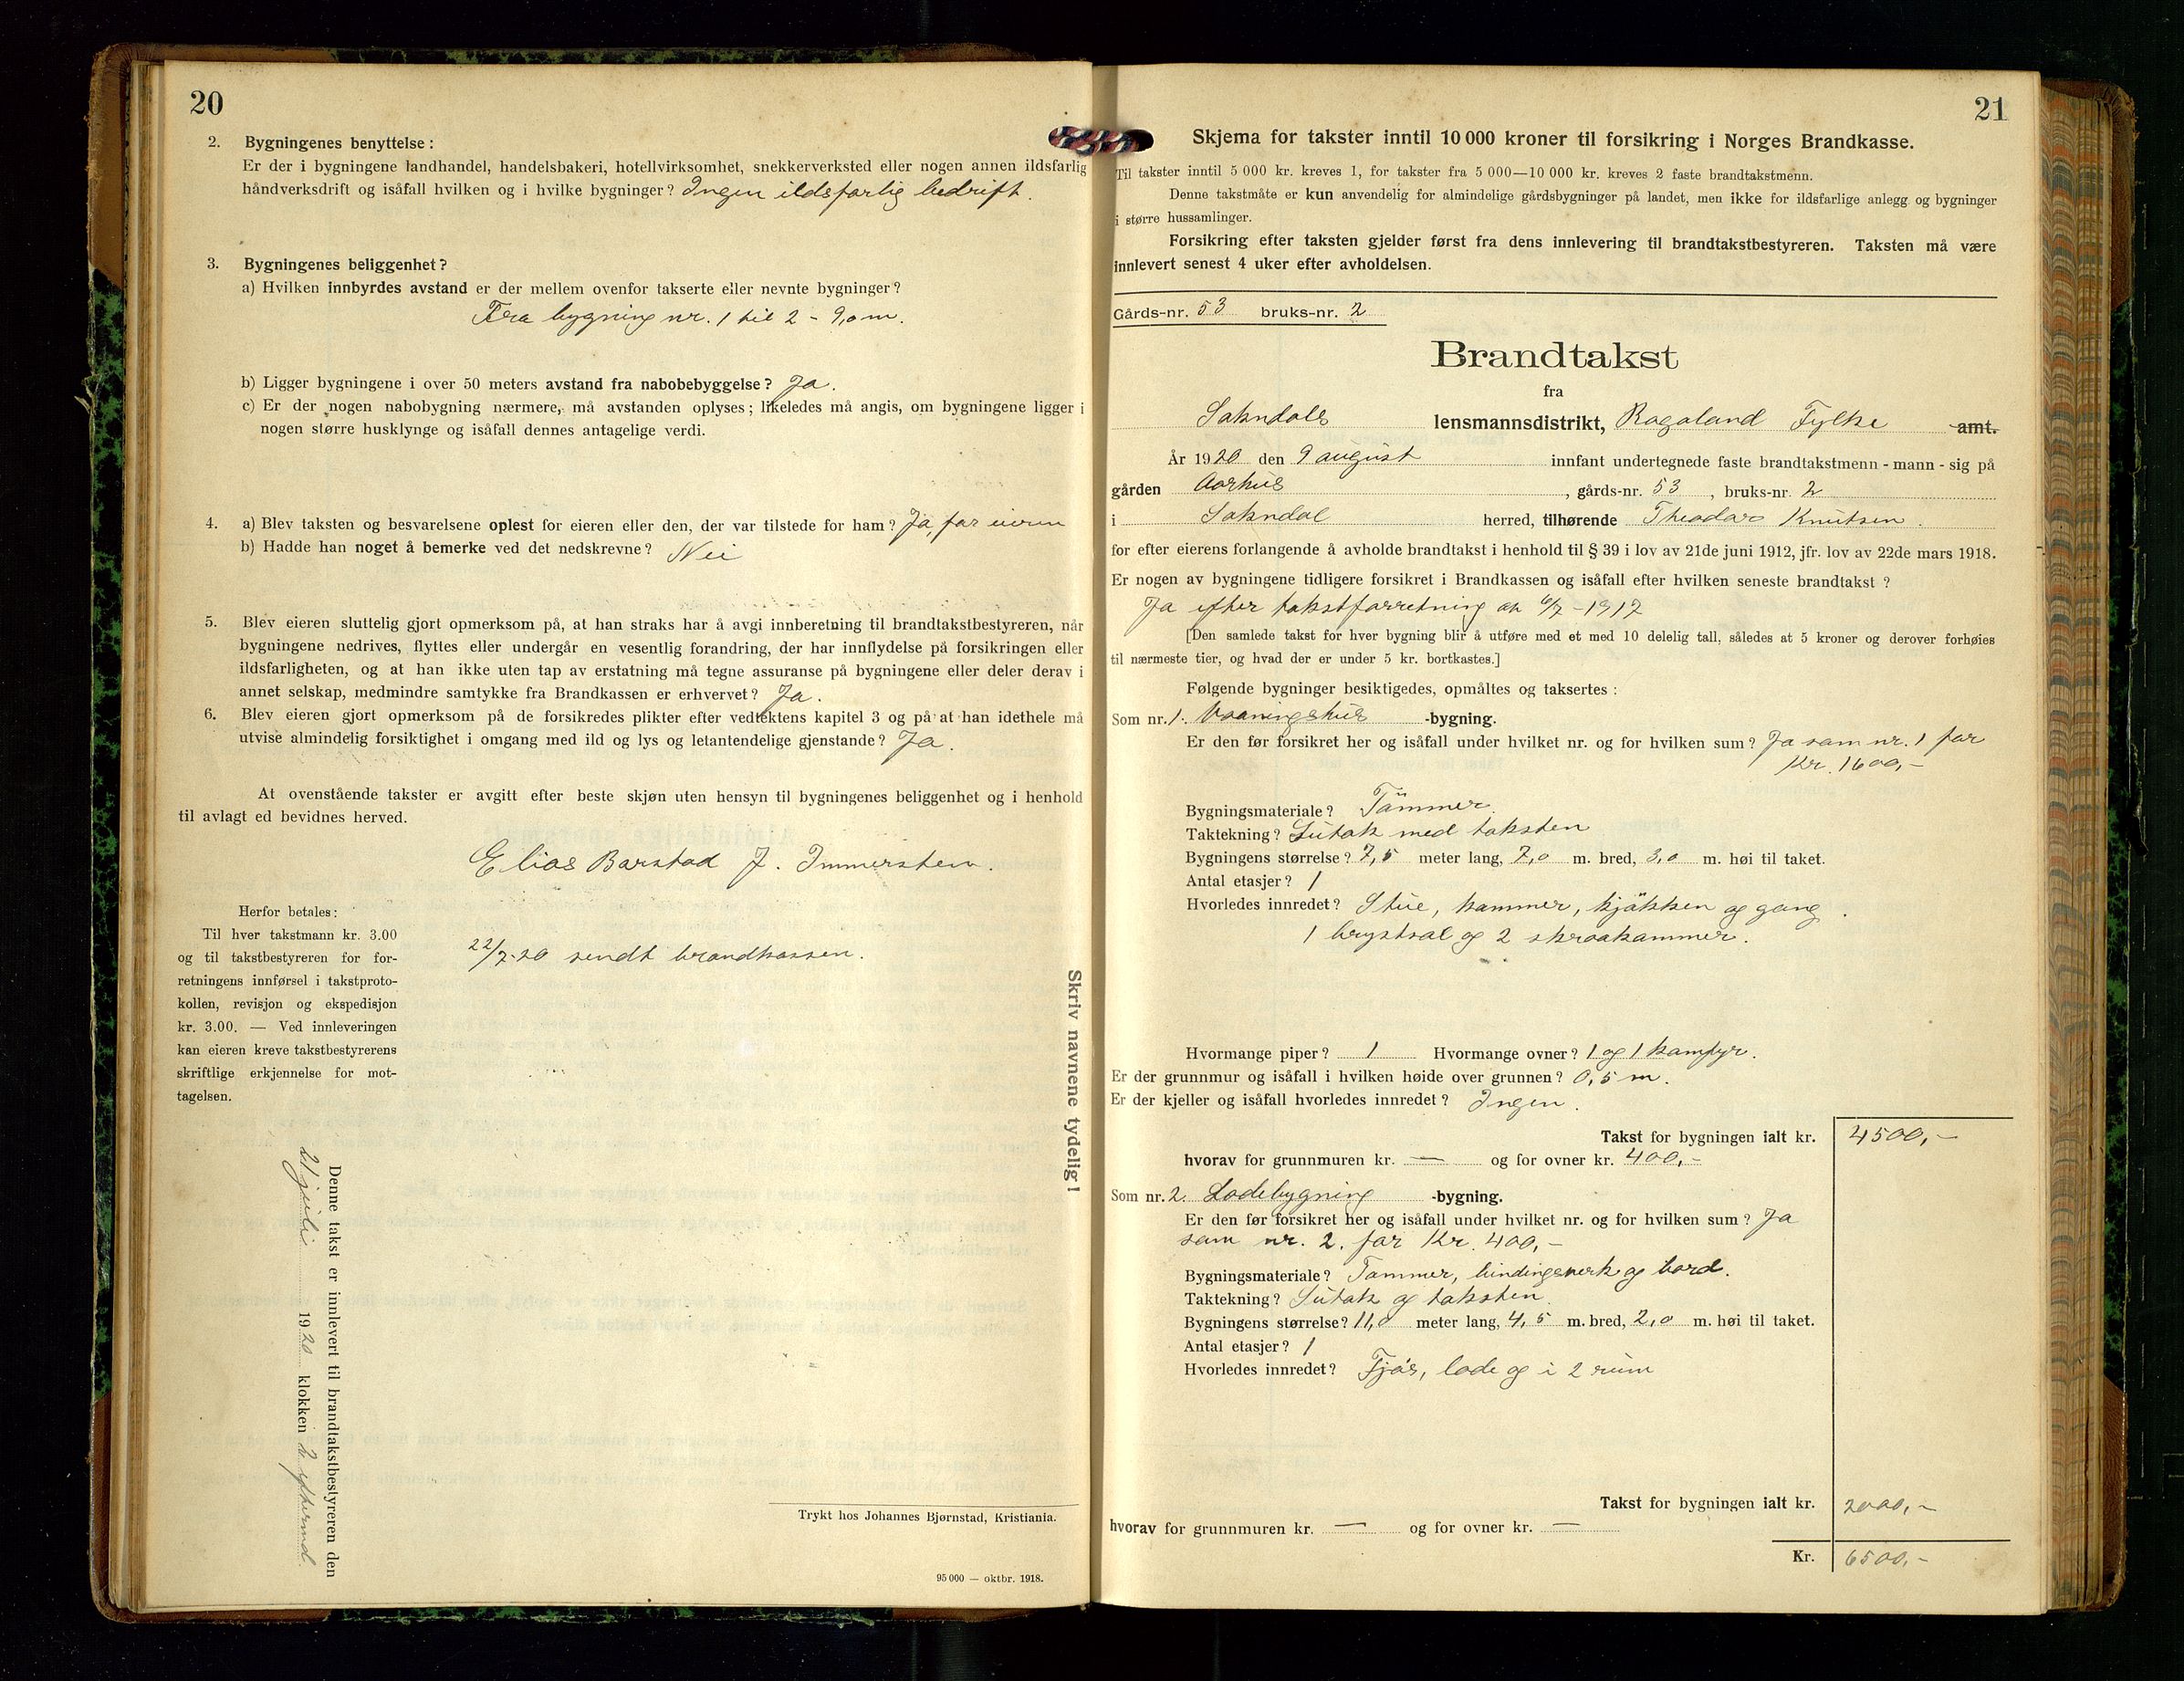 20
2. Bygningenes benyttelse :
Er der i bygningene landhandel, handelsbakeri, hotellvirksomhet, snekkerverksted eller nogen annen ildsfarlig
håndverksdrift og isåfall hvilken og i hvilke bygninger? Ingen ildsfarlig bedrift.
3. Bygningenes beliggenhet?
a) Hvilken innbyrdes avstand er der mellem ovenfor takserte eller nevnte bygninger?
Fra bygning nr. 1 til 2 - 9,0 m.
b) Ligger bygningene i over 50 meters avstand fra nabobebyggelse? Ja.
c) Er der nogen nabobygning nærmere, må avstanden oplyses; likeledes må angis, om bygningene ligger i
nogen større husklynge og isåfall dennes antagelige verdi.
4. a) Blev taksten og besvarelsene oplest for eieren eller den, der var tilstede for ham? Ja, for eieren
b) Hadde han noget å bemerke ved det nedskrevne? Nei
5. Blev eieren sluttelig gjort opmerksom på, at han straks har å avgi innberetning til brandtakstbestyreren, når
bygningene nedrives, flyttes eller undergår en vesentlig forandring, der har innflydelse på forsikringen eller
ildsfarligheten, og at han ikke uten tap av erstatning må tegne assuranse på bygningene eller deler derav i
annet selskap, medmindre samtykke fra Brandkassen er erhvervet? Ja.
6. Blev eieren gjort opmerksom på de forsikredes plikter efter vedtektens kapitel 3 og på at han idethele må
utvise almindelig forsiktighet i omgang med ild og lys og letantendelige gjenstande? Ja.
At ovenstående takster er avgitt efter beste skjøn uten hensyn til bygningenes beliggenhet og i henhold
til avlagt ed bevidnes herved.
Elias Barstad J. Immerstein.
Herfor betales:
Til hver takstmann kr. 3.00
og til takstbestyreren for for-
retningens innførsel i takstproto-
kollen, revisjon og ekspedisjon
kr. 3.00. — Ved innleveringen
kan eieren kreve takstbestyrerens
skriftlige erkjennelse for mot-
tagelsen.
22/7-20 sendt brandkassen.
Skriv navnene tydelig!
Denne takst er innlevert til brandtakstbestyreren den
21 juli 1920 klokken 2 eftermd.
Trykt hos Johannes Bjørnstad, Kristiania.
95 000 — oktbr. 1918.
21
Skjema for takster inntil 10 000 kroner til forsikring i Norges Brandkasse.
Til takster inntil 5 000 kr. kreves 1, for takster fra 5 000—10 000 kr. kreves 2 faste brandtakstmenn.
Denne takstmåte er kun anvendelig for almindelige gårdsbygninger på landet, men ikke for ildsfarlige anlegg og bygninger
i større hussamlinger.
Forsikring efter taksten gjelder først fra dens innlevering til brandtakstbestyreren. Taksten må være
innlevert senest 4 uker efter avholdelsen.
Gårds-nr. 53 bruks-nr. 2
Brandtakst
fra
Sokndals lensmannsdistrikt, Rogaland Fylke amt.
År 1920 den 9 august innfant undertegnede faste brandtakstmenn - mann - sig på
gården Aarhus, gårds-nr. 53, bruks-nr. 2
i Sokndal herred, tilhørende Theodor Knutsen.
for efter eierens forlangende å avholde brandtakst i henhold til § 39 i lov av 21de juni 1912, jfr. lov av 22de mars 1918.
Er nogen av bygningene tidligere forsikret i Brandkassen og isåfall efter hvilken seneste brandtakst ?
Ja efter takstforretning av 6/7 - 1917
[Den samlede takst for hver bygning blir å utføre med et med 10 delelig tall, således at 5 kroner og derover forhøies
til nærmeste tier, og hvad der er under 5 kr. bortkastes.]
Følgende bygninger besiktigedes, opmåltes og taksertes :
Som nr. 1. Vaaningshus -bygning.
Er den før forsikret her og isåfall under hvilket nr. og for hvilken sum? Ja som nr. 1 for
Kr. 1600,-
Bygningsmateriale? Tømmer
Taktekning? Sutak med taksten
Bygningens størrelse? 7,5 meter lang, 7,0 m. bred, 3,0 m. høi til taket.
Antal etasjer? 1
Hvorledes innredet? Stue, kammer, kjøkken og gang.
1 brystsal og 2 skraakammer.
Hvormange piper? 1 Hvormange ovner? 1 og 1 komfyr.
Er der grunnmur og isåfall i hvilken høide over grunnen? 0,5 m.
Er der kjeller og isåfall hvorledes innredet? Ingen.
Takst for bygningen ialt kr. 4500,-
hvorav for grunnmuren kr. — og for ovner kr. 400,-
Som nr. 2. Ladebygning -bygning.
Er den før forsikret her og isåfall under hvilket nr. og for hvilken sum? Ja
som nr. 2. for Kr. 400,-
Bygningsmateriale? Tømmer, bindingsverk og bord.
Taktekning? Sutak og taksten.
Bygningens størrelse? 11,0 meter lang, 4,5 m. bred, 2,0 m. høi til taket.
Antal etasjer? 1
Hvorledes innredet? Fjøs, lade og i 2 rum
Takst for bygningen ialt kr. 2000,-
hvorav for grunnmuren kr. — og for ovner kr. —
Kr. 6500,-